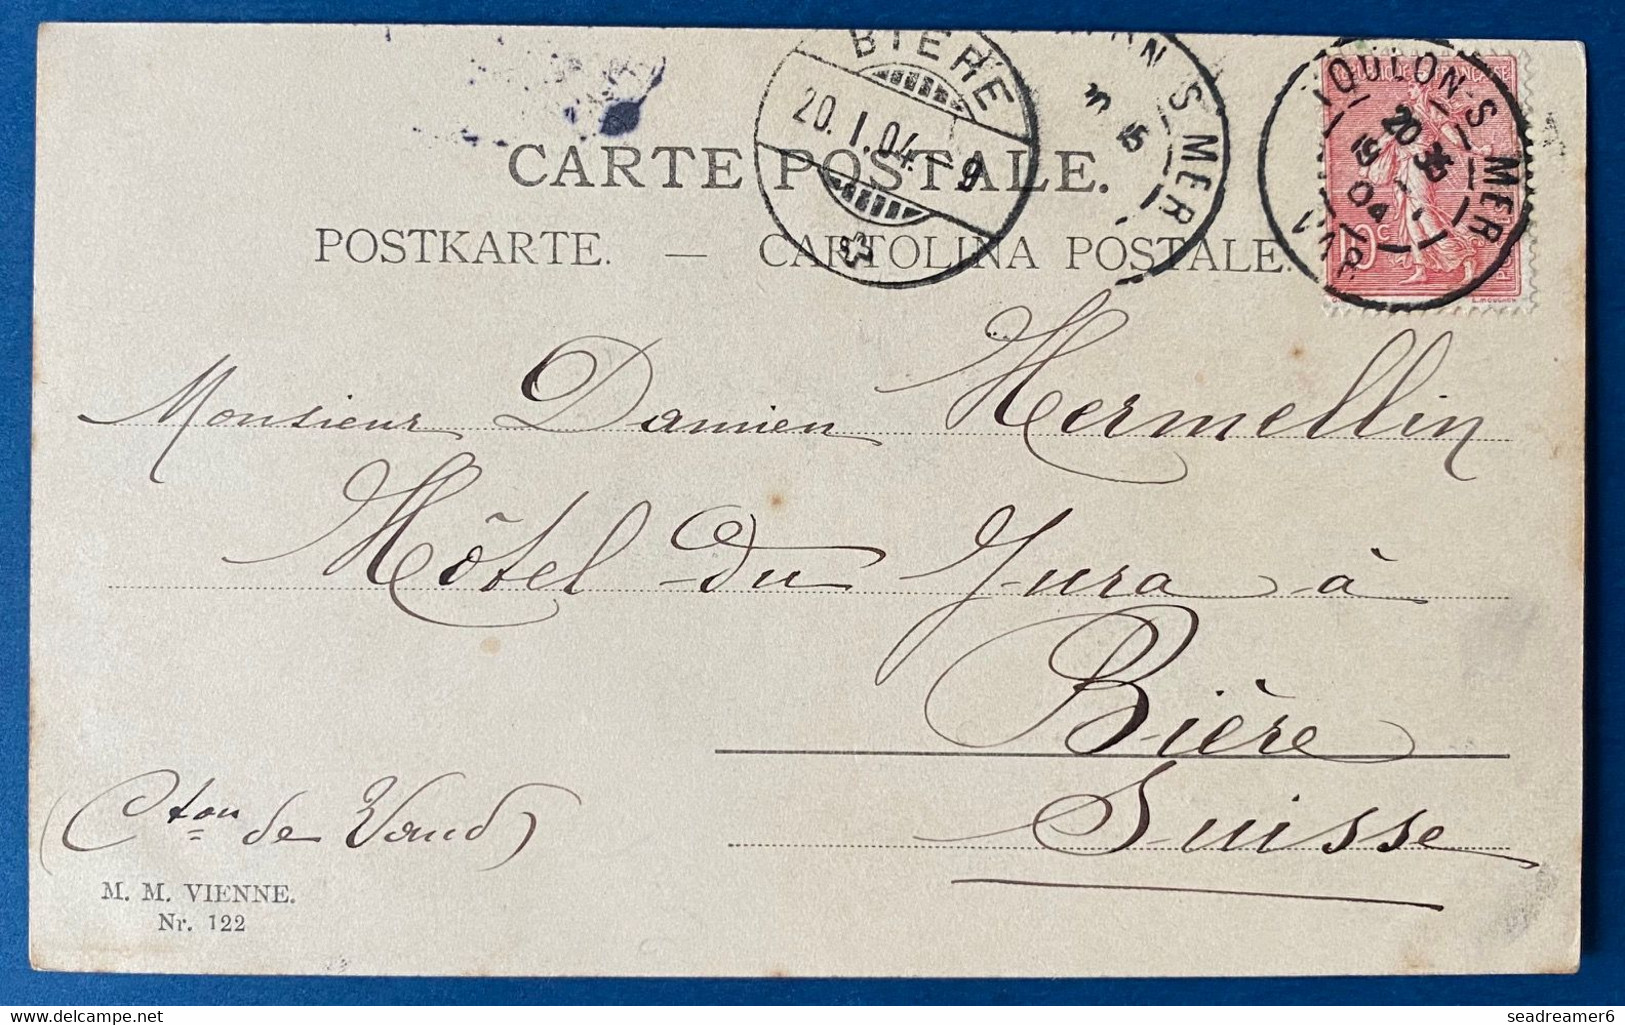 BIERE
20. I. 04. - 9
S MER
TOULON-S MER
VAR
10 c
CARTE POSTALE.
POSTKARTE. — CARTOLINA POSTALE.
Monsieur Damien Hermellin
Hôtel du Jura à
Bière
Suisse
(Cton de Vaud)
M. M. VIENNE.
Nr. 122
seadreamer6